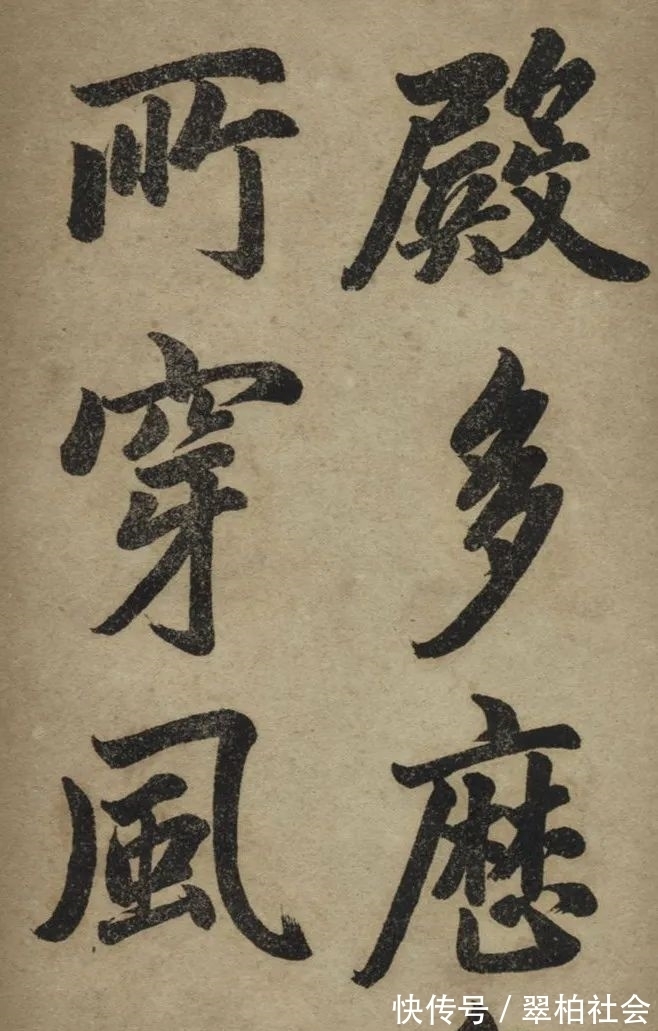 殿多
所穿風
快传号/翠柏社会